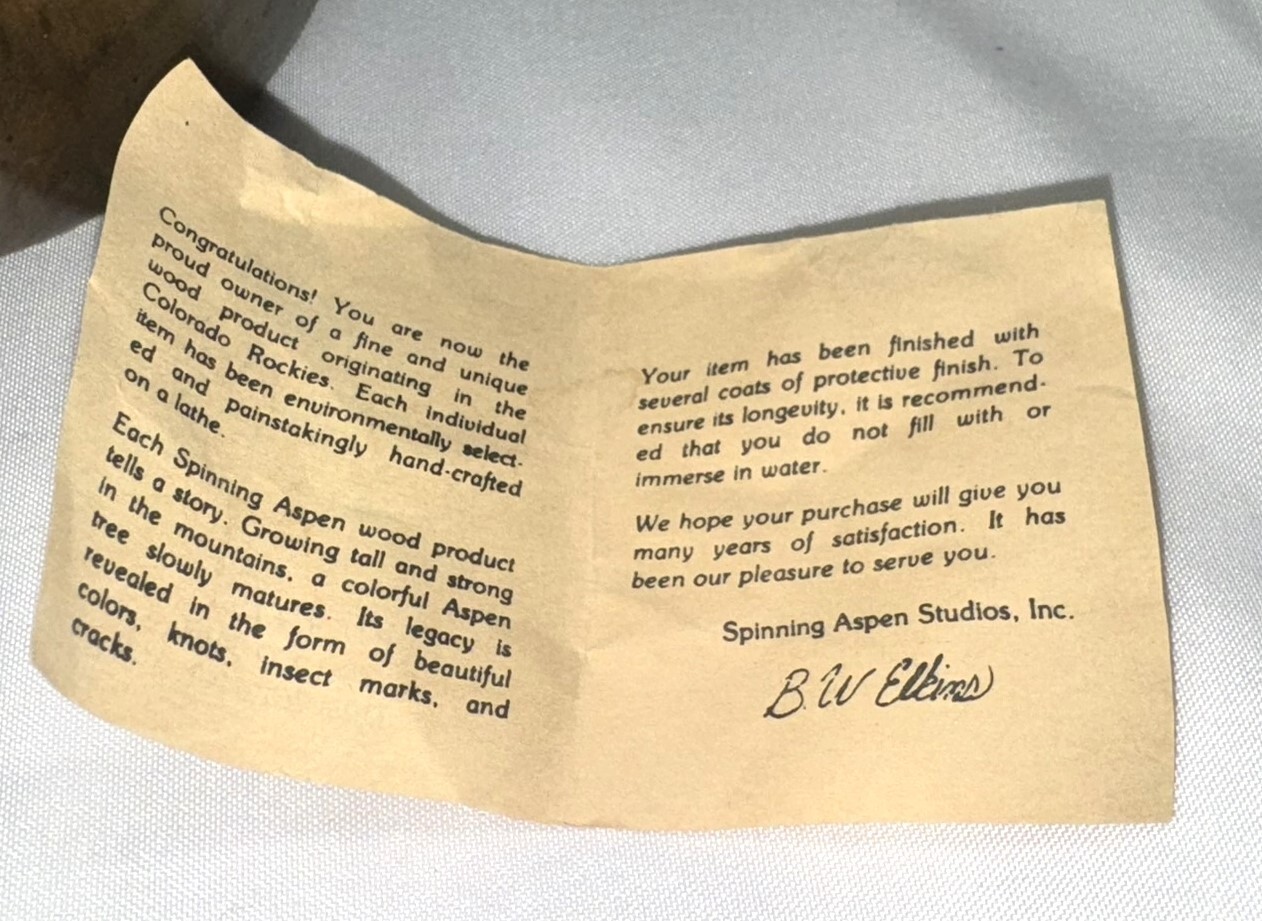 Congratulations! You are now the
proud owner of a fine and unique
wood product originating in the
Colorado Rockies. Each individual
item has been environmentally select-
ed and painstakingly hand-crafted
on a lathe.
Each Spinning Aspen wood product
tells a story. Growing tall and strong
in the mountains, a colorful Aspen
tree slowly matures. Its legacy is
revealed in the form of beautiful
colors, knots, insect marks, and
cracks.
Your item has been finished with
several coats of protective finish. To
ensure its longevity, it is recommend-
ed that you do not fill with or
immerse in water.
We hope your purchase will give you
many years of satisfaction. It has
been our pleasure to serve you.
Spinning Aspen Studios, Inc.
B. W Elkins